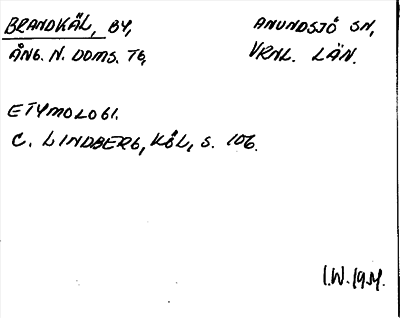 BRANDKÄL, BY, ANUNDSJÖ SN,
ÅNG. N. DOMS. TG, VRNL. LÄN.
ETYMOLOGI.
C. LINDBERG, KÖL, S. 106.
I.W. 19